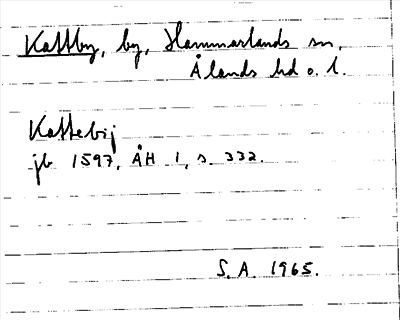 Kattby, by, Hammarlands sn,
Ålands hd o. l.
Kattebij
jb 1597, ÅH 1, s. 332.
S. A. 1965.